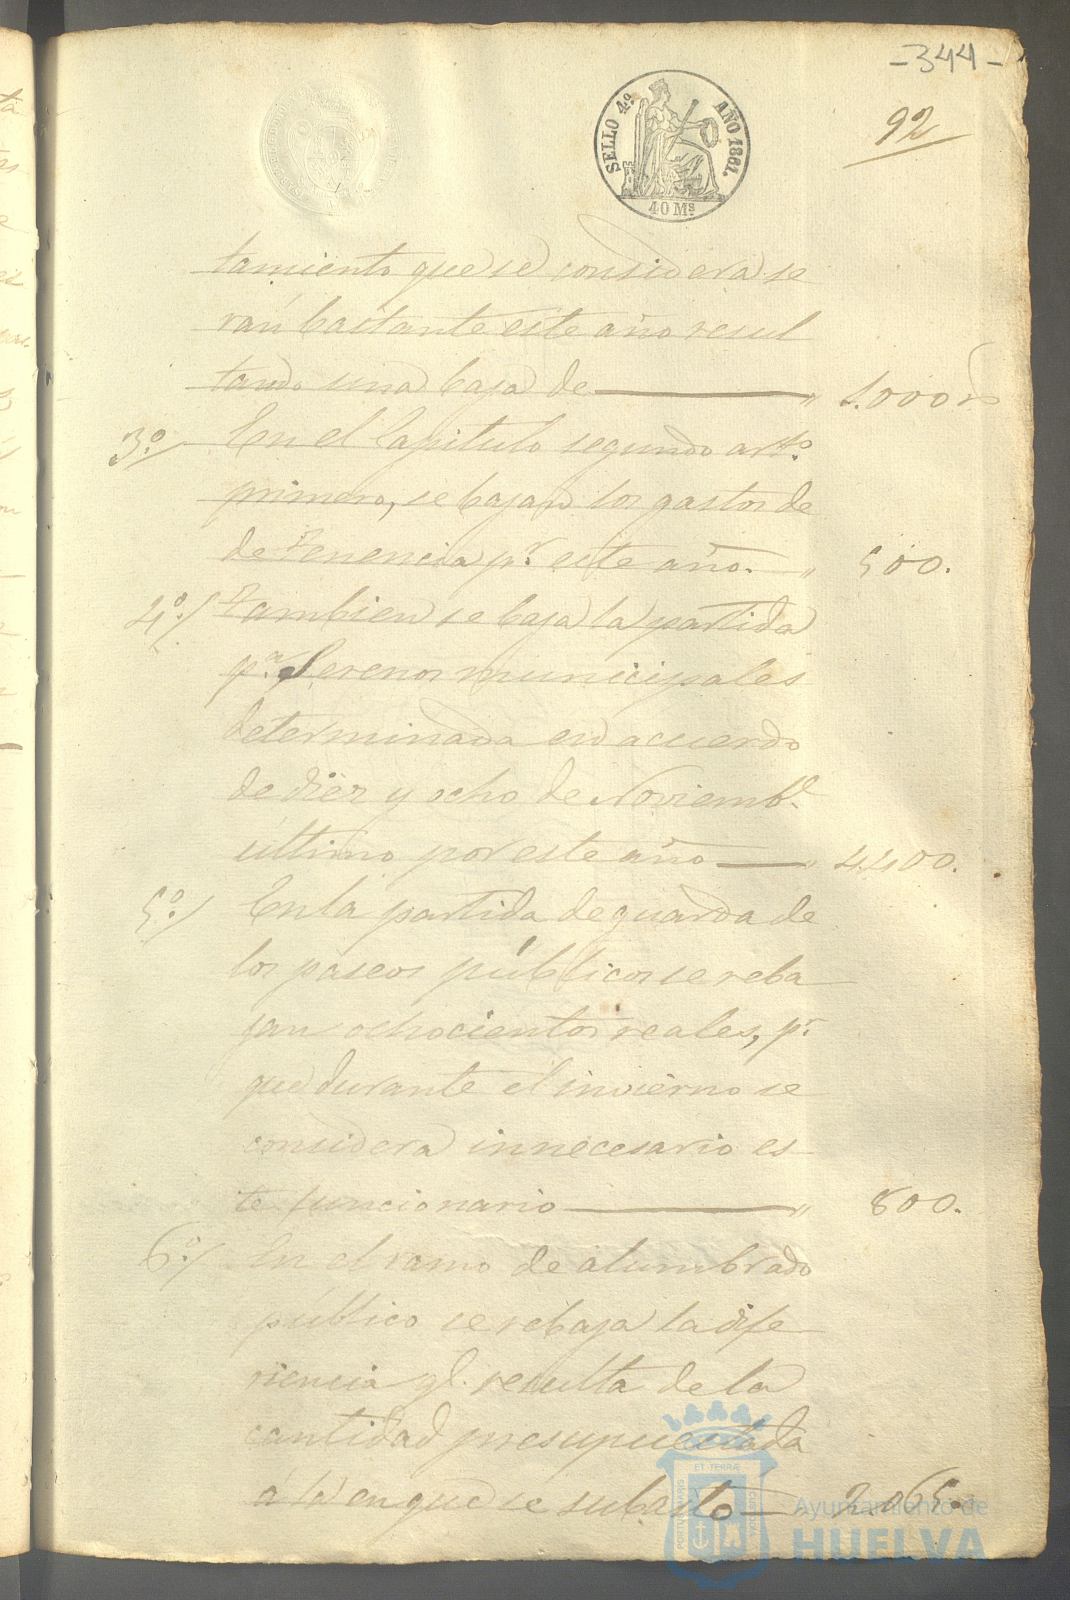 -344-
92
SELLO 4º AÑO 1861.
40 Ms
tamiento que se considera se
rán bastante este año resul
tando una baja de — " 1.000 rs
3º/ En el Capitulo segundo artº
primero, se bajan los gastos de
detenencia pr este año. — " 500.
4º/ Tambien se baja la partida
pª Serenos municipales
determinada en acuerdo
de diez y ocho de Noviembe
último por este año — " 4.400.
5º/ En la partida de guarda de
los paseos públicos se reba
jan ochocientos reales, pr
que durante el invierno se
considera innecesario es
te funcionario — " 800.
6º/ En el ramo de alumbrado
público se rebaja la dife
riencia ql. resulta de la
cantidad presupuestada
a la en que se subastó — 2.065.
Ayuntamiento de
HUELVA
ET TERRÆ